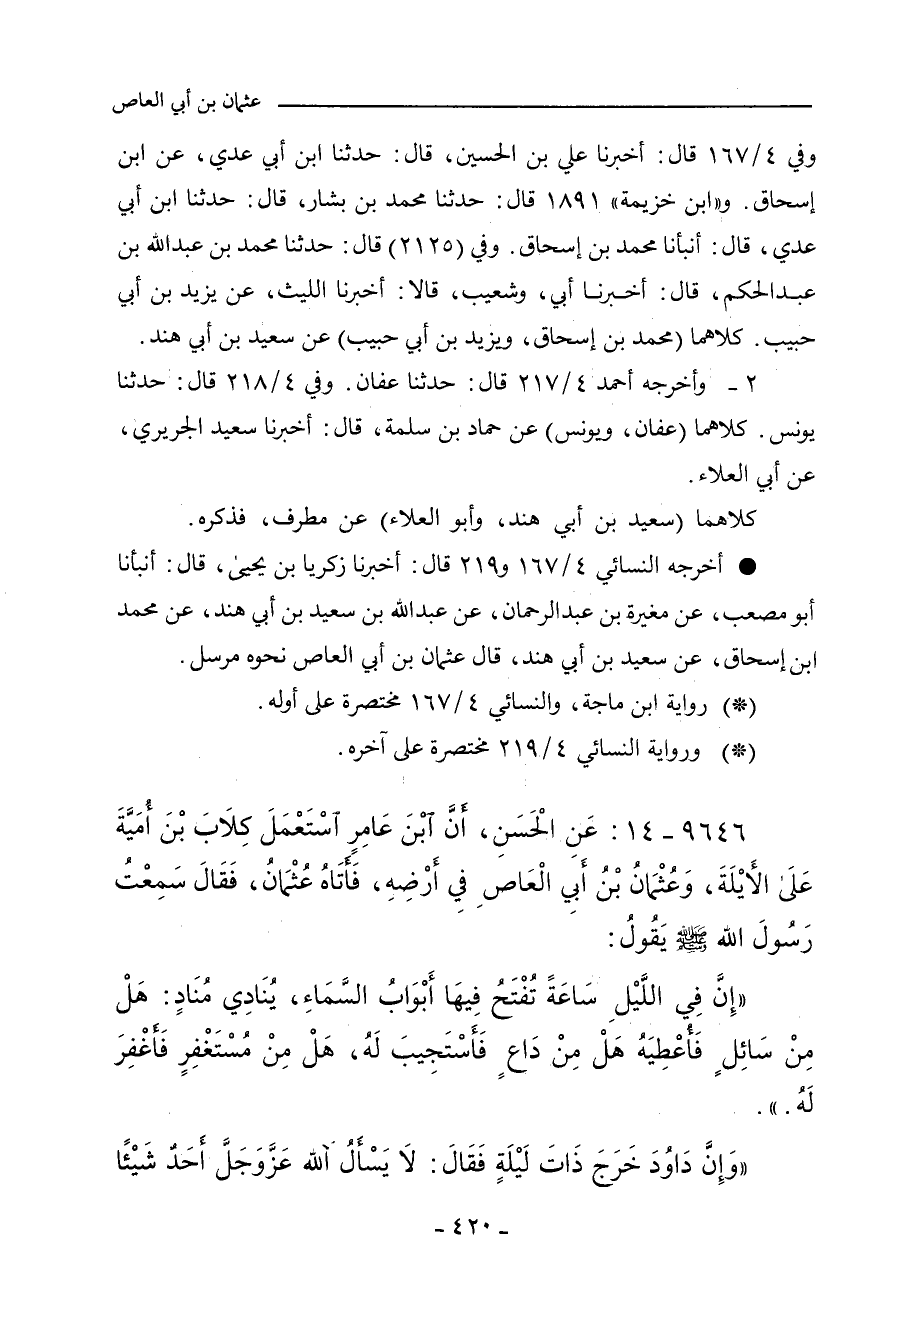 عثمان بن أبي العاص
وفي ٤/١٦٧ قال: أخبرنا علي بن الحسين، قال: حدثنا ابن أبي عدي، عن ابن
إسحاق. و«ابن خزيمة» ١٨٩١ قال: حدثنا محمد بن بشار، قال: حدثنا ابن أبي
عدي، قال: أنبأنا محمد بن إسحاق. وفي (٢١٢٥) قال: حدثنا محمد بن عبدالله بن
عبدالحكم، قال: أخبرنا أبي، وشعيب، قالا: أخبرنا الليث، عن يزيد بن أبي
حبيب. كلاهما (محمد بن إسحاق، ويزيد بن أبي حبيب) عن سعيد بن أبي هند.
٢ - وأخرجه أحمد ٤/٢١٧ قال: حدثنا عفان. وفي ٤/٢١٨ قال: حدثنا
يونس. كلاهما (عفان، ويونس) عن حماد بن سلمة، قال: أخبرنا سعيد الجريري،
عن أبي العلاء.
كلاهما (سعيد بن أبي هند، وأبو العلاء) عن مطرف، فذكره.
● أخرجه النسائي ٤/١٦٧ و٢١٩ قال: أخبرنا زكريا بن يحيىٰ، قال: أنبأنا
أبو مصعب، عن مغيرة بن عبدالرحمان، عن عبدالله بن سعيد بن أبي هند، عن محمد
ابن إسحاق، عن سعيد بن أبي هند، قال عثمان بن أبي العاص نحوه مرسل.
(*) رواية ابن ماجة، والنسائي ٤/١٦٧ مختصرة على أوله.
(*) ورواية النسائي ٤/٢١٩ مختصرة على آخره.
٩٦٤٦ - ١٤: عَنِ الْحَسَنِ، أَنَّ ٱبْنَ عَامِرٍ ٱسْتَعْمَلَ كِلَابَ بْنَ أُمَيَّةَ
عَلَىٰ الأَيْلَةَ، وَعُثْمَانُ بْنُ أَبِي الْعَاصِ فِي أَرْضِهِ، فَأَتَاهُ عُثْمَانُ، فَقَالَ سَمِعْتُ
رَسُولَ الله ﷺ يَقُولُ:
«إِنَّ فِي اللَّيْلِ سَاعَةً تُفْتَحُ فِيهَا أَبْوَابُ السَّمَاءِ، يُنَادِي مُنَادٍ: هَلْ
مِنْ سَائِلٍ فَأُعْطِيَهُ هَلْ مِنْ دَاعٍ فَأَسْتَجِيبَ لَهُ، هَلْ مِنْ مُسْتَغْفِرٍ فَأَغْفِرَ
لَهُ.».
«وَإِنَّ دَاوُدَ خَرَجَ ذَاتَ لَيْلَةٍ فَقَالَ: لَا يَسْأَلُ ٱلله عَزَّوَجَلَّ أَحَدٌ شَيْئًا
- ٤٢٠ -